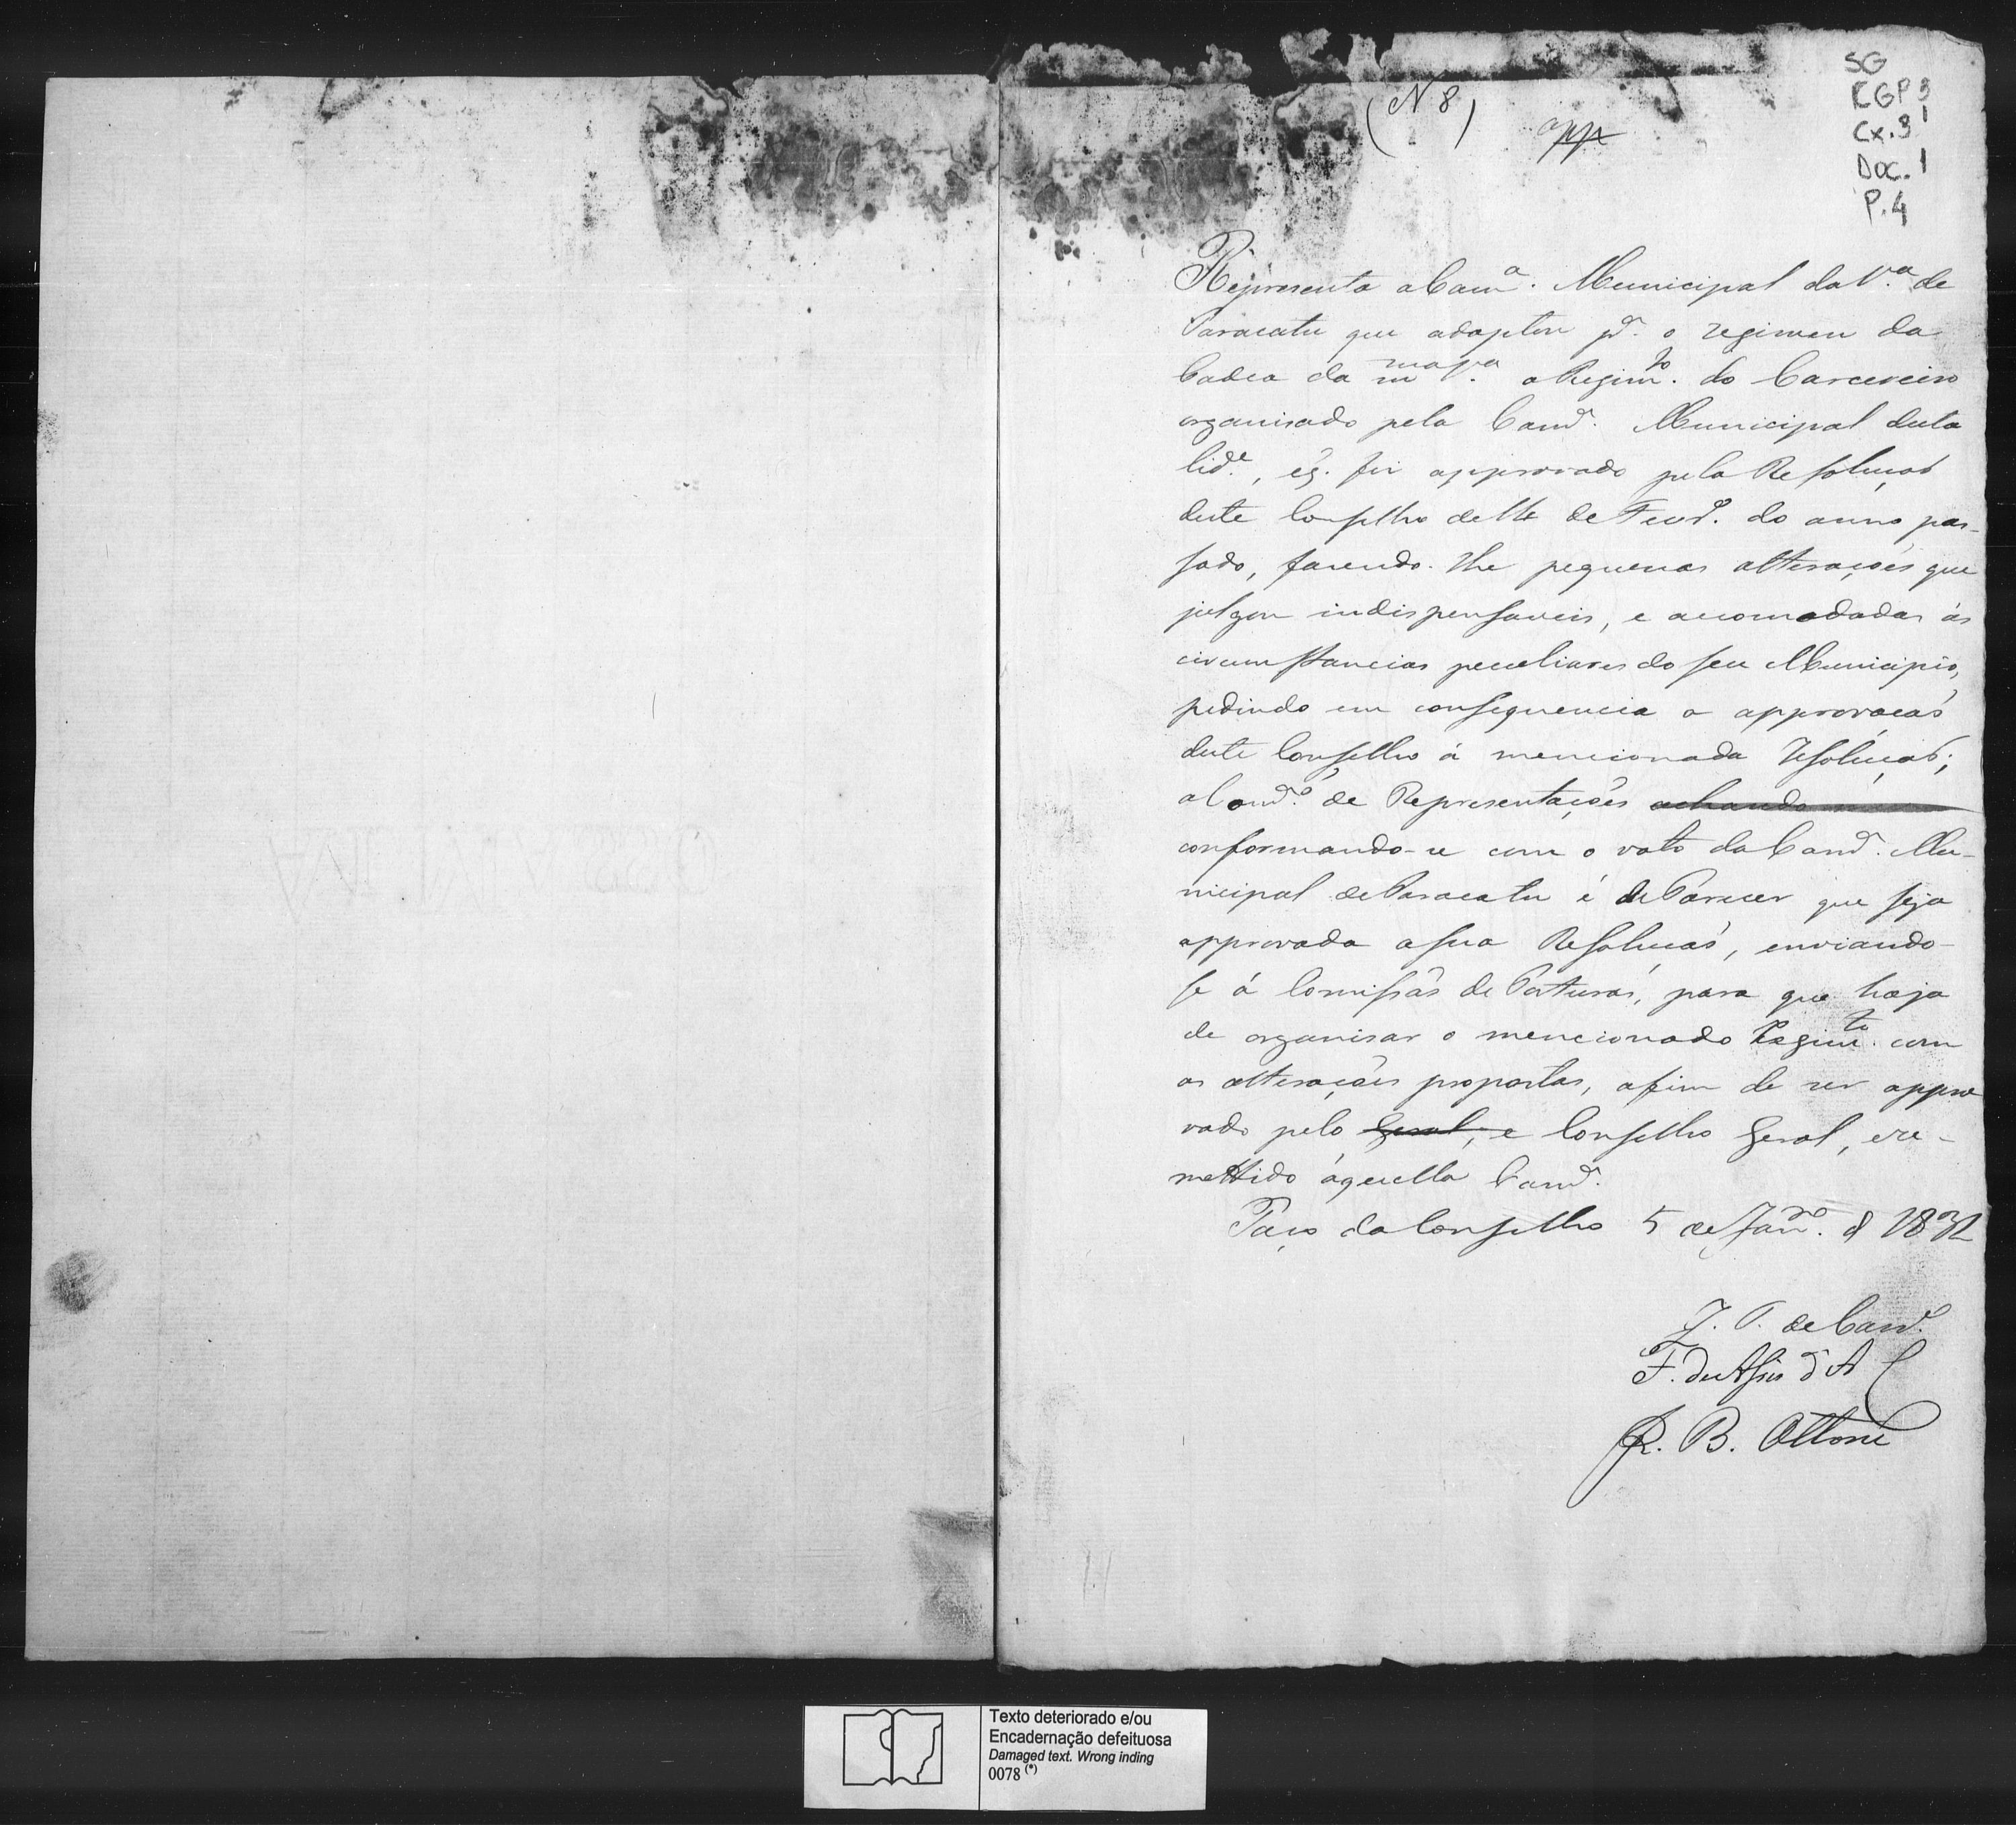 (N 8)
app
SG
CGP3
Cx. 3
Doc. 1
P. 4
Representa a Cam.ª Municipal da V.ª de
Paracatu que adoptou p.ª o regimen da
Cadea da m.ma V.ª o Regim.to do Carcereiro
organisado pela Cam.ª Municipal desta
Cid.e, e q. foi approvado pela Resoluçaõ
deste Conselho de 14 de Fevr.º do anno pas-
sado, fasendo-lhe pequenas alteraçoẽs que
julgou indispensaveis, e accomodadas ás
circumstancias peculiares do seu Municipio,
pedindo em consequencia a approvaçaõ
deste Conselho á mencionada Resoluçaõ;
a Com.ᵃõ de Representaçoẽs achando
conformando-se com o voto da Cam.ª Mu-
nicipal de Paracatu é de Parecer que seja
approvada a sua Resoluçaõ, enviando-
se á Comissaõ de Posturas, para que haja
de organisar o mencionado Regim.to com
as alteraçoẽs propostas, afim de ser appro
vado pelo Geral, e Conselho Geral, e re-
mettido áquella Cam.ª
Paço do Conselho 5 de Jan.ro d 1832
J. P. de Carv.º
F. de Assis d'A
R. B. Ottoni
Texto deteriorado e/ou
Encadernação defeituosa
Damaged text. Wrong inding
0078 (*)